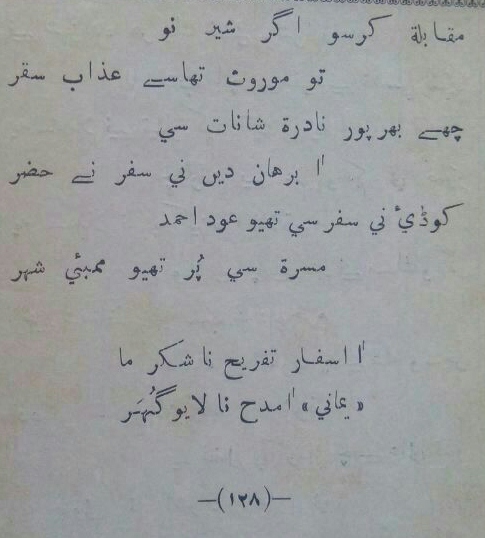 مقابلة كرسو اگر شير نو
تو موروث تهاسے عذاب سقر
چھے بھر پور نادرة شانات سي
اٰ برهان ديں ني سفر نے حضر
كوڈئ ني سفر سي تهيو عود احمد
مسرة سي پُر تهيو ممبئي شهر
اٰ اسفار تفريح نا شكر ما
« يماني » اٰمدح نا لايو گُهَر
—(١٢٨)—